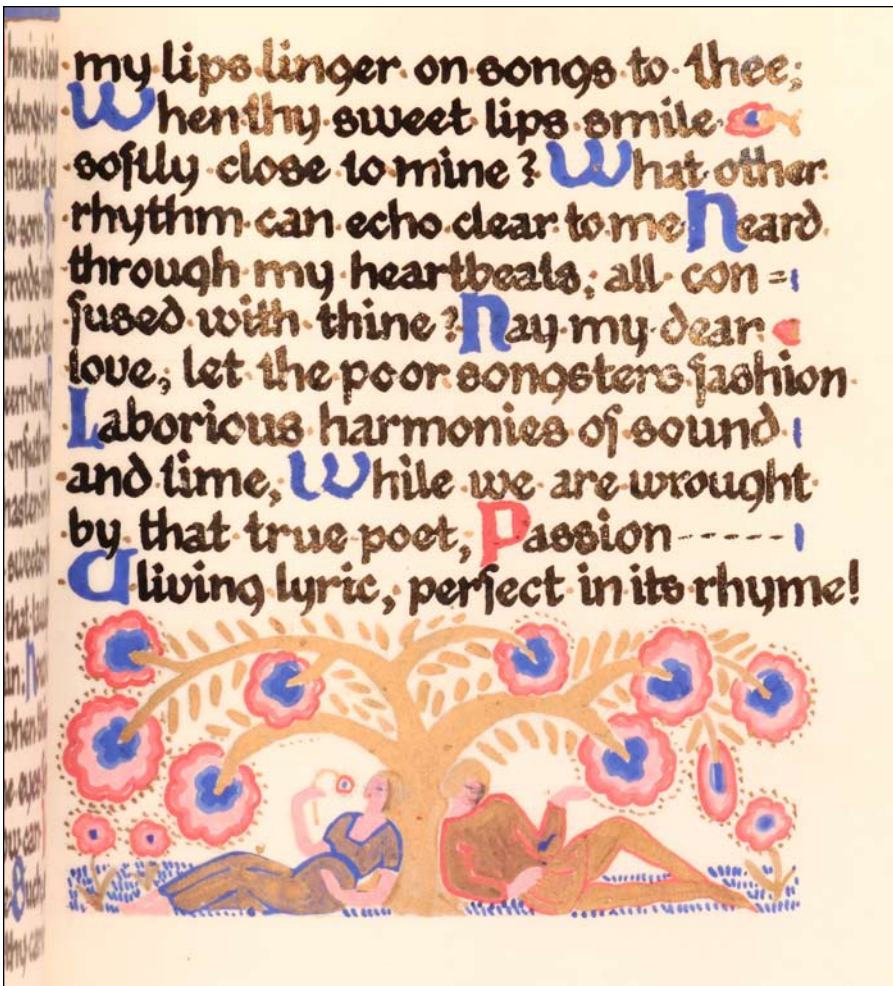 my lips linger on songs to thee;
When thy sweet lips smile
softly close to mine? What other
rhythm can echo clear to me Heard
through my heartbeats; all con=
fused with thine? Nay my dear
love, let the poor songsters fashion
Laborious harmonies of sound
and time, While we are wrought
by that true poet, Passion------
A living lyric, perfect in its rhyme!